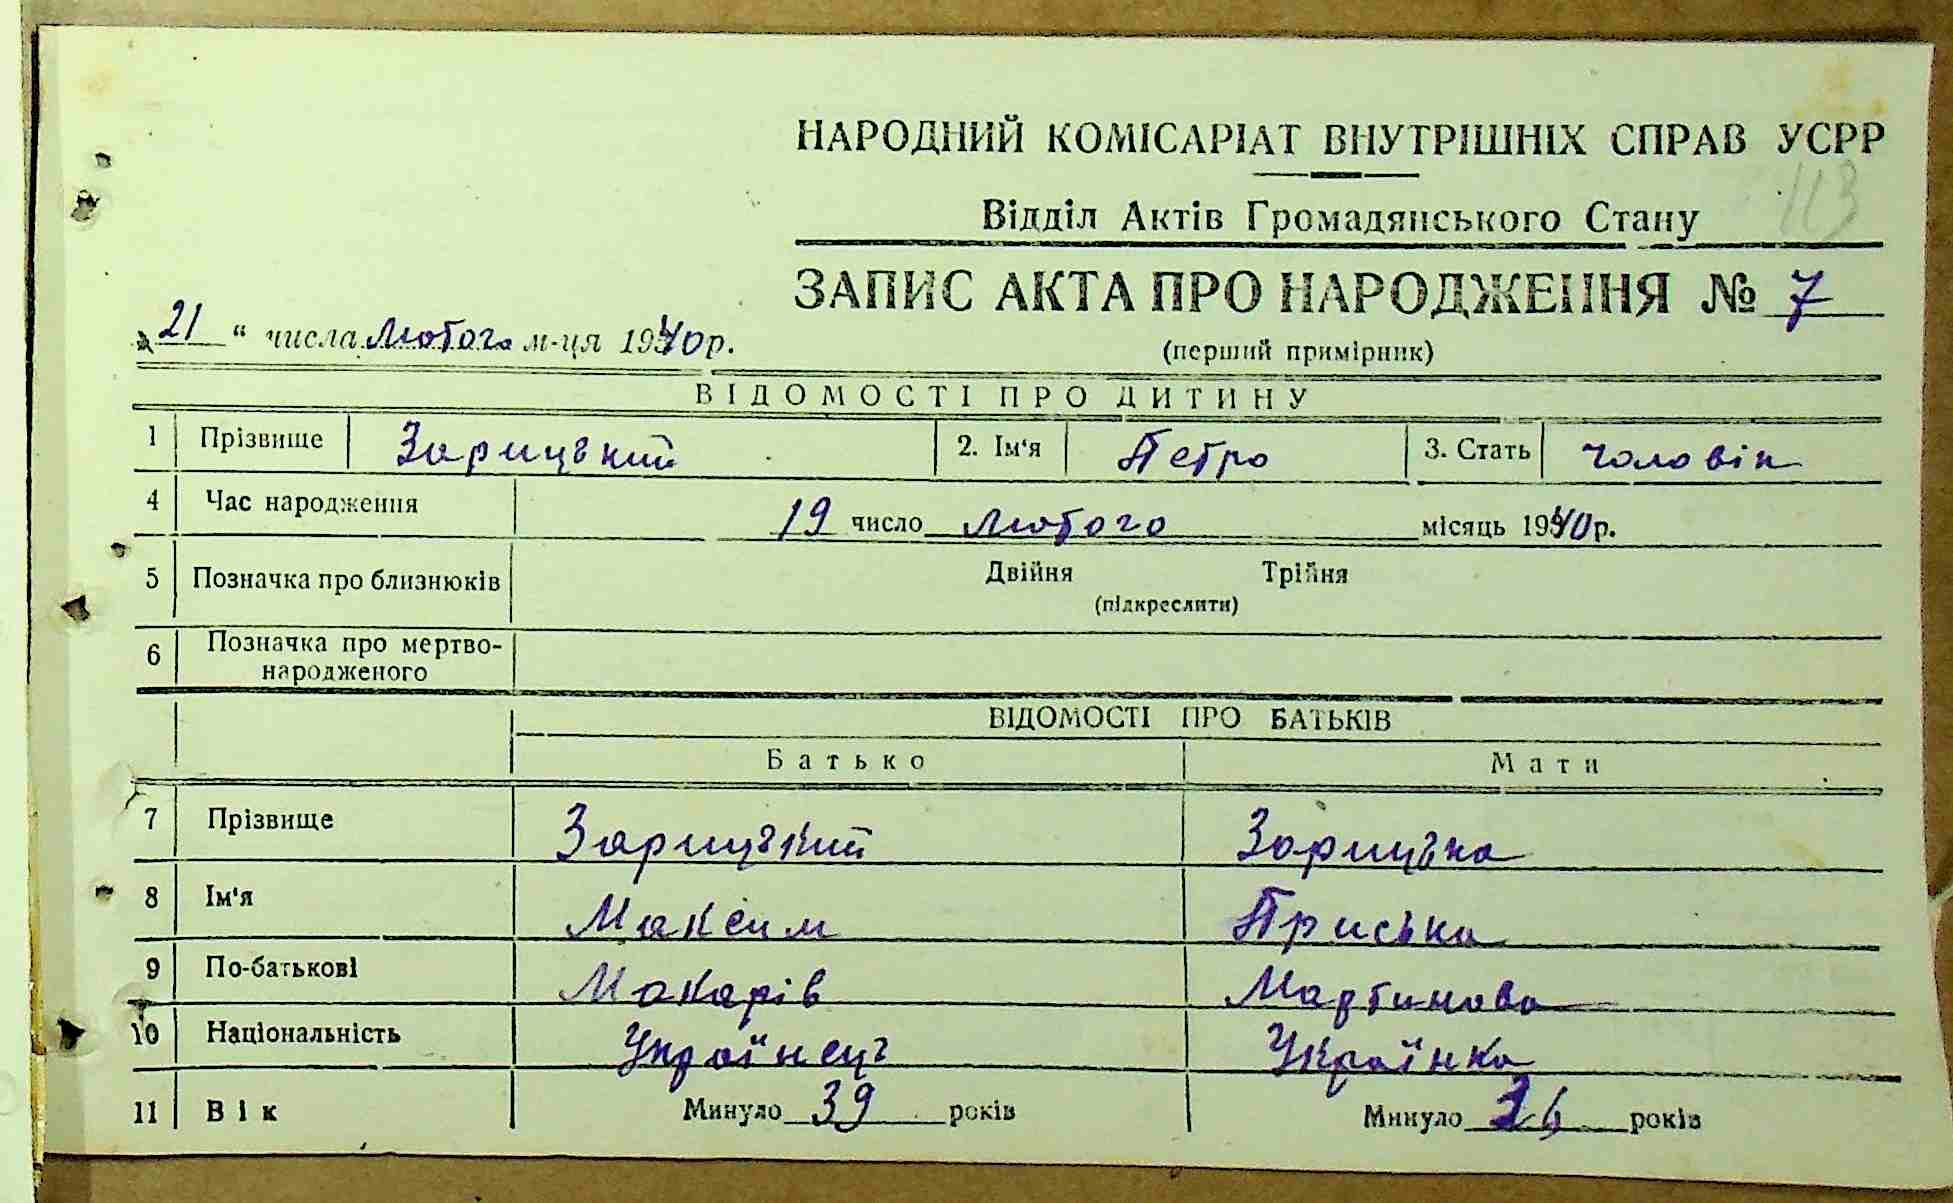 НАРОДНИЙ КОМІСАРІАТ ВНУТРІШНІХ СПРАВ УСРР
113
Відділ Актів Громадянського Стану
ЗАПИС АКТА ПРО НАРОДЖЕННЯ № 7
(перший примірник)
„21“ числа Лютого м-ця 1940 р.
ВІДОМОСТІ ПРО ДИТИНУ
1 Прізвище Зарицький 2. Ім'я Петро 3. Стать чоловік
4 Час народження 19 число Лютого місяць 1940 р.
5 Позначка про близнюків Двійня Трійня
(підкреслити)
6 Позначка про мертво-
народженого
ВІДОМОСТІ ПРО БАТЬКІВ
Батько Мати
7 Прізвище Зарицький Зарицька
8 Ім'я Максим Приська
9 По-батькові Макарів Мартинова
10 Національність Українець Українка
11 Вік Минуло 39 років Минуло 36 років